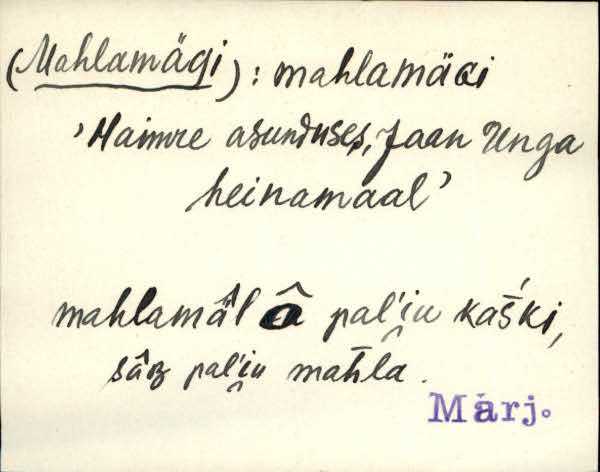 (Mahlamägi): mahlamäGi
'Haimre asunduses, Jaan Unga
heinamaal'
mahlamä̂l â pal'i̯u kaš́ki,
sâʙ pal'i̯u mah̄la.
Märj.